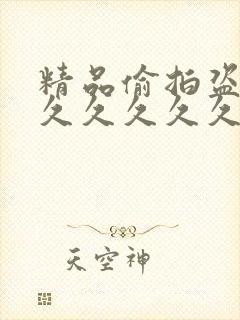 精品偷拍盗
久久久久久
天空神